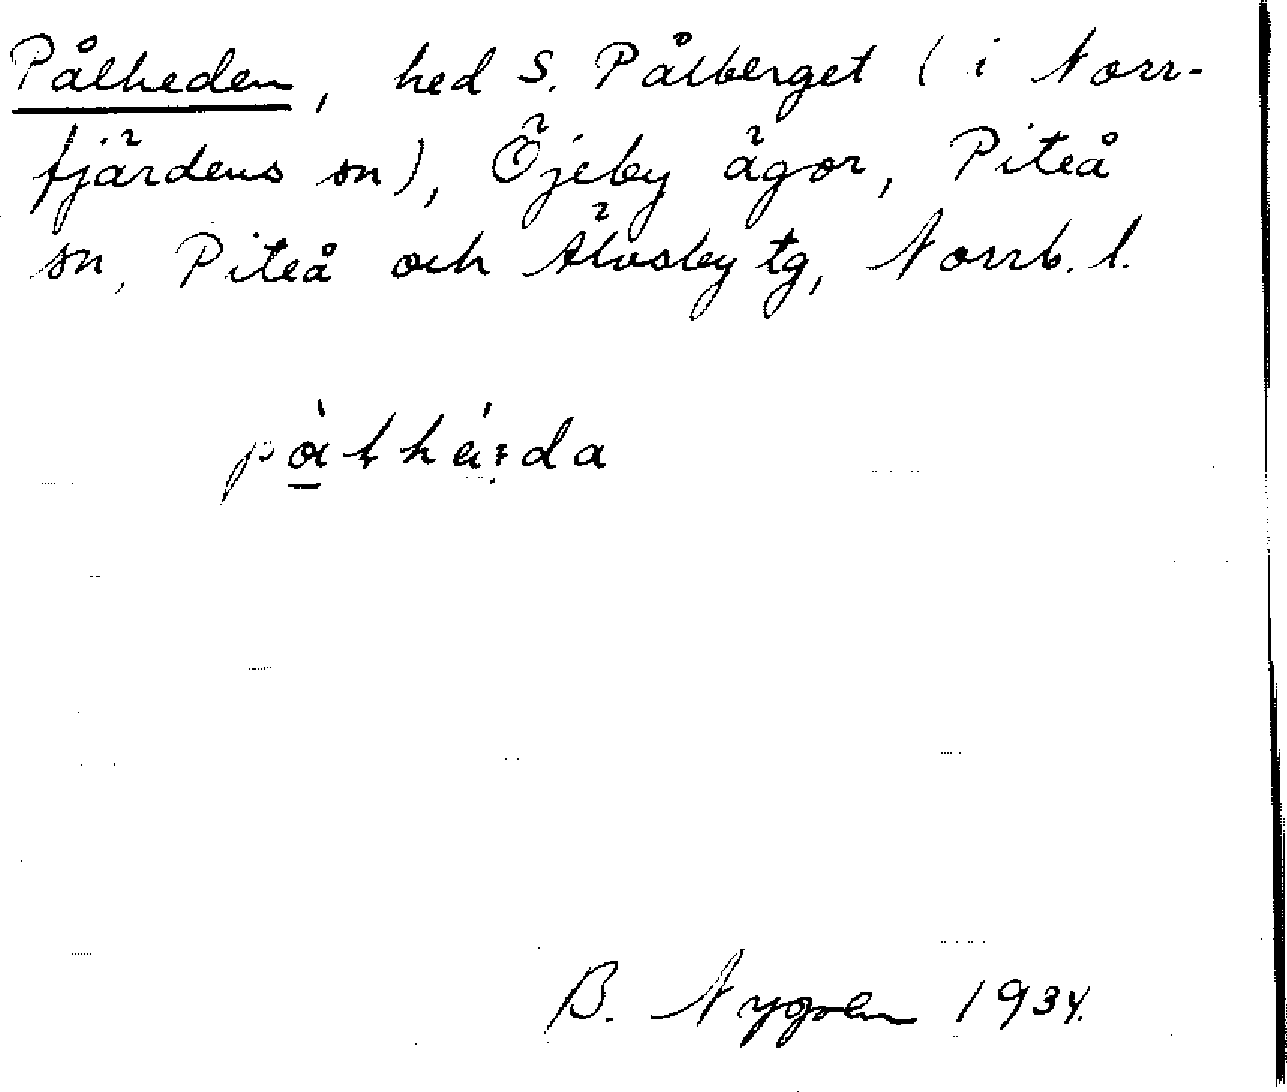 Pålheden, hed S. Pålberget (i Norr-
fjärdens sn), Öjeby ägor, Piteå
sn, Piteå och Älvsby tg, Norrb. l.
B. Nygren 1934.